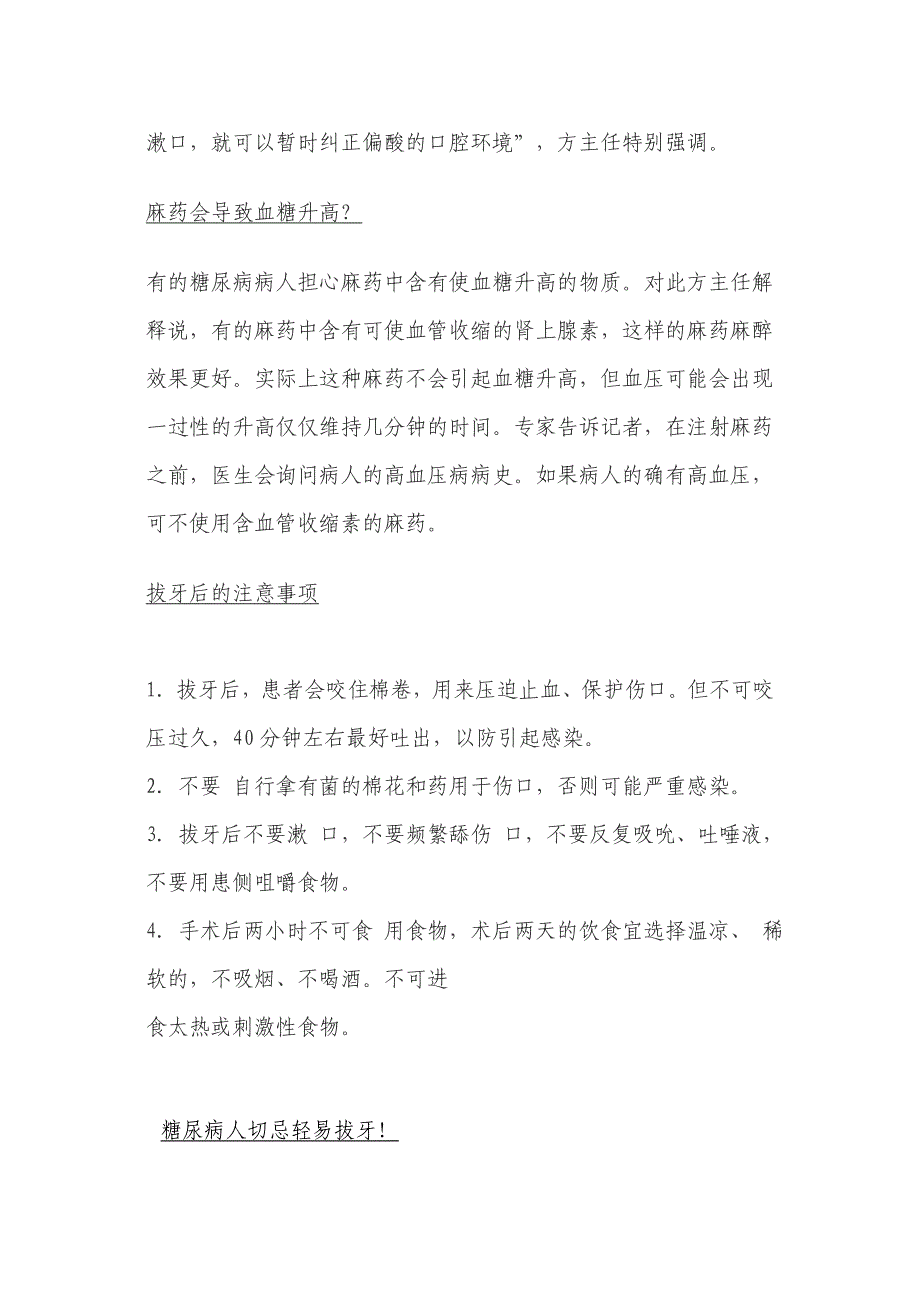 漱口，就可以暂时纠正偏酸的口腔环境”，方主任特别强调。
麻药会导致血糖升高？
有的糖尿病病人担心麻药中含有使血糖升高的物质。对此方主任解
释说，有的麻药中含有可使血管收缩的肾上腺素，这样的麻药麻醉
效果更好。实际上这种麻药不会引起血糖升高，但血压可能会出现
一过性的升高仅仅维持几分钟的时间。专家告诉记者，在注射麻药
之前，医生会询问病人的高血压病病史。如果病人的确有高血压，
可不使用含血管收缩素的麻药。
拔牙后的注意事项
1．拔牙后，患者会咬住棉卷，用来压迫止血、保护伤口。但不可咬
压过久，40分钟左右最好吐出，以防引起感染。
2．不要 自行拿有菌的棉花和药用于伤口，否则可能严重感染。
3．拔牙后不要漱 口，不要频繁舔伤 口，不要反复吸吮、吐唾液，
不要用患侧咀嚼食物。
4．手术后两小时不可食 用食物，术后两天的饮食宜选择温凉、 稀
软的，不吸烟、不喝酒。不可进
食太热或刺激性食物。
糖尿病人切忌轻易拔牙！